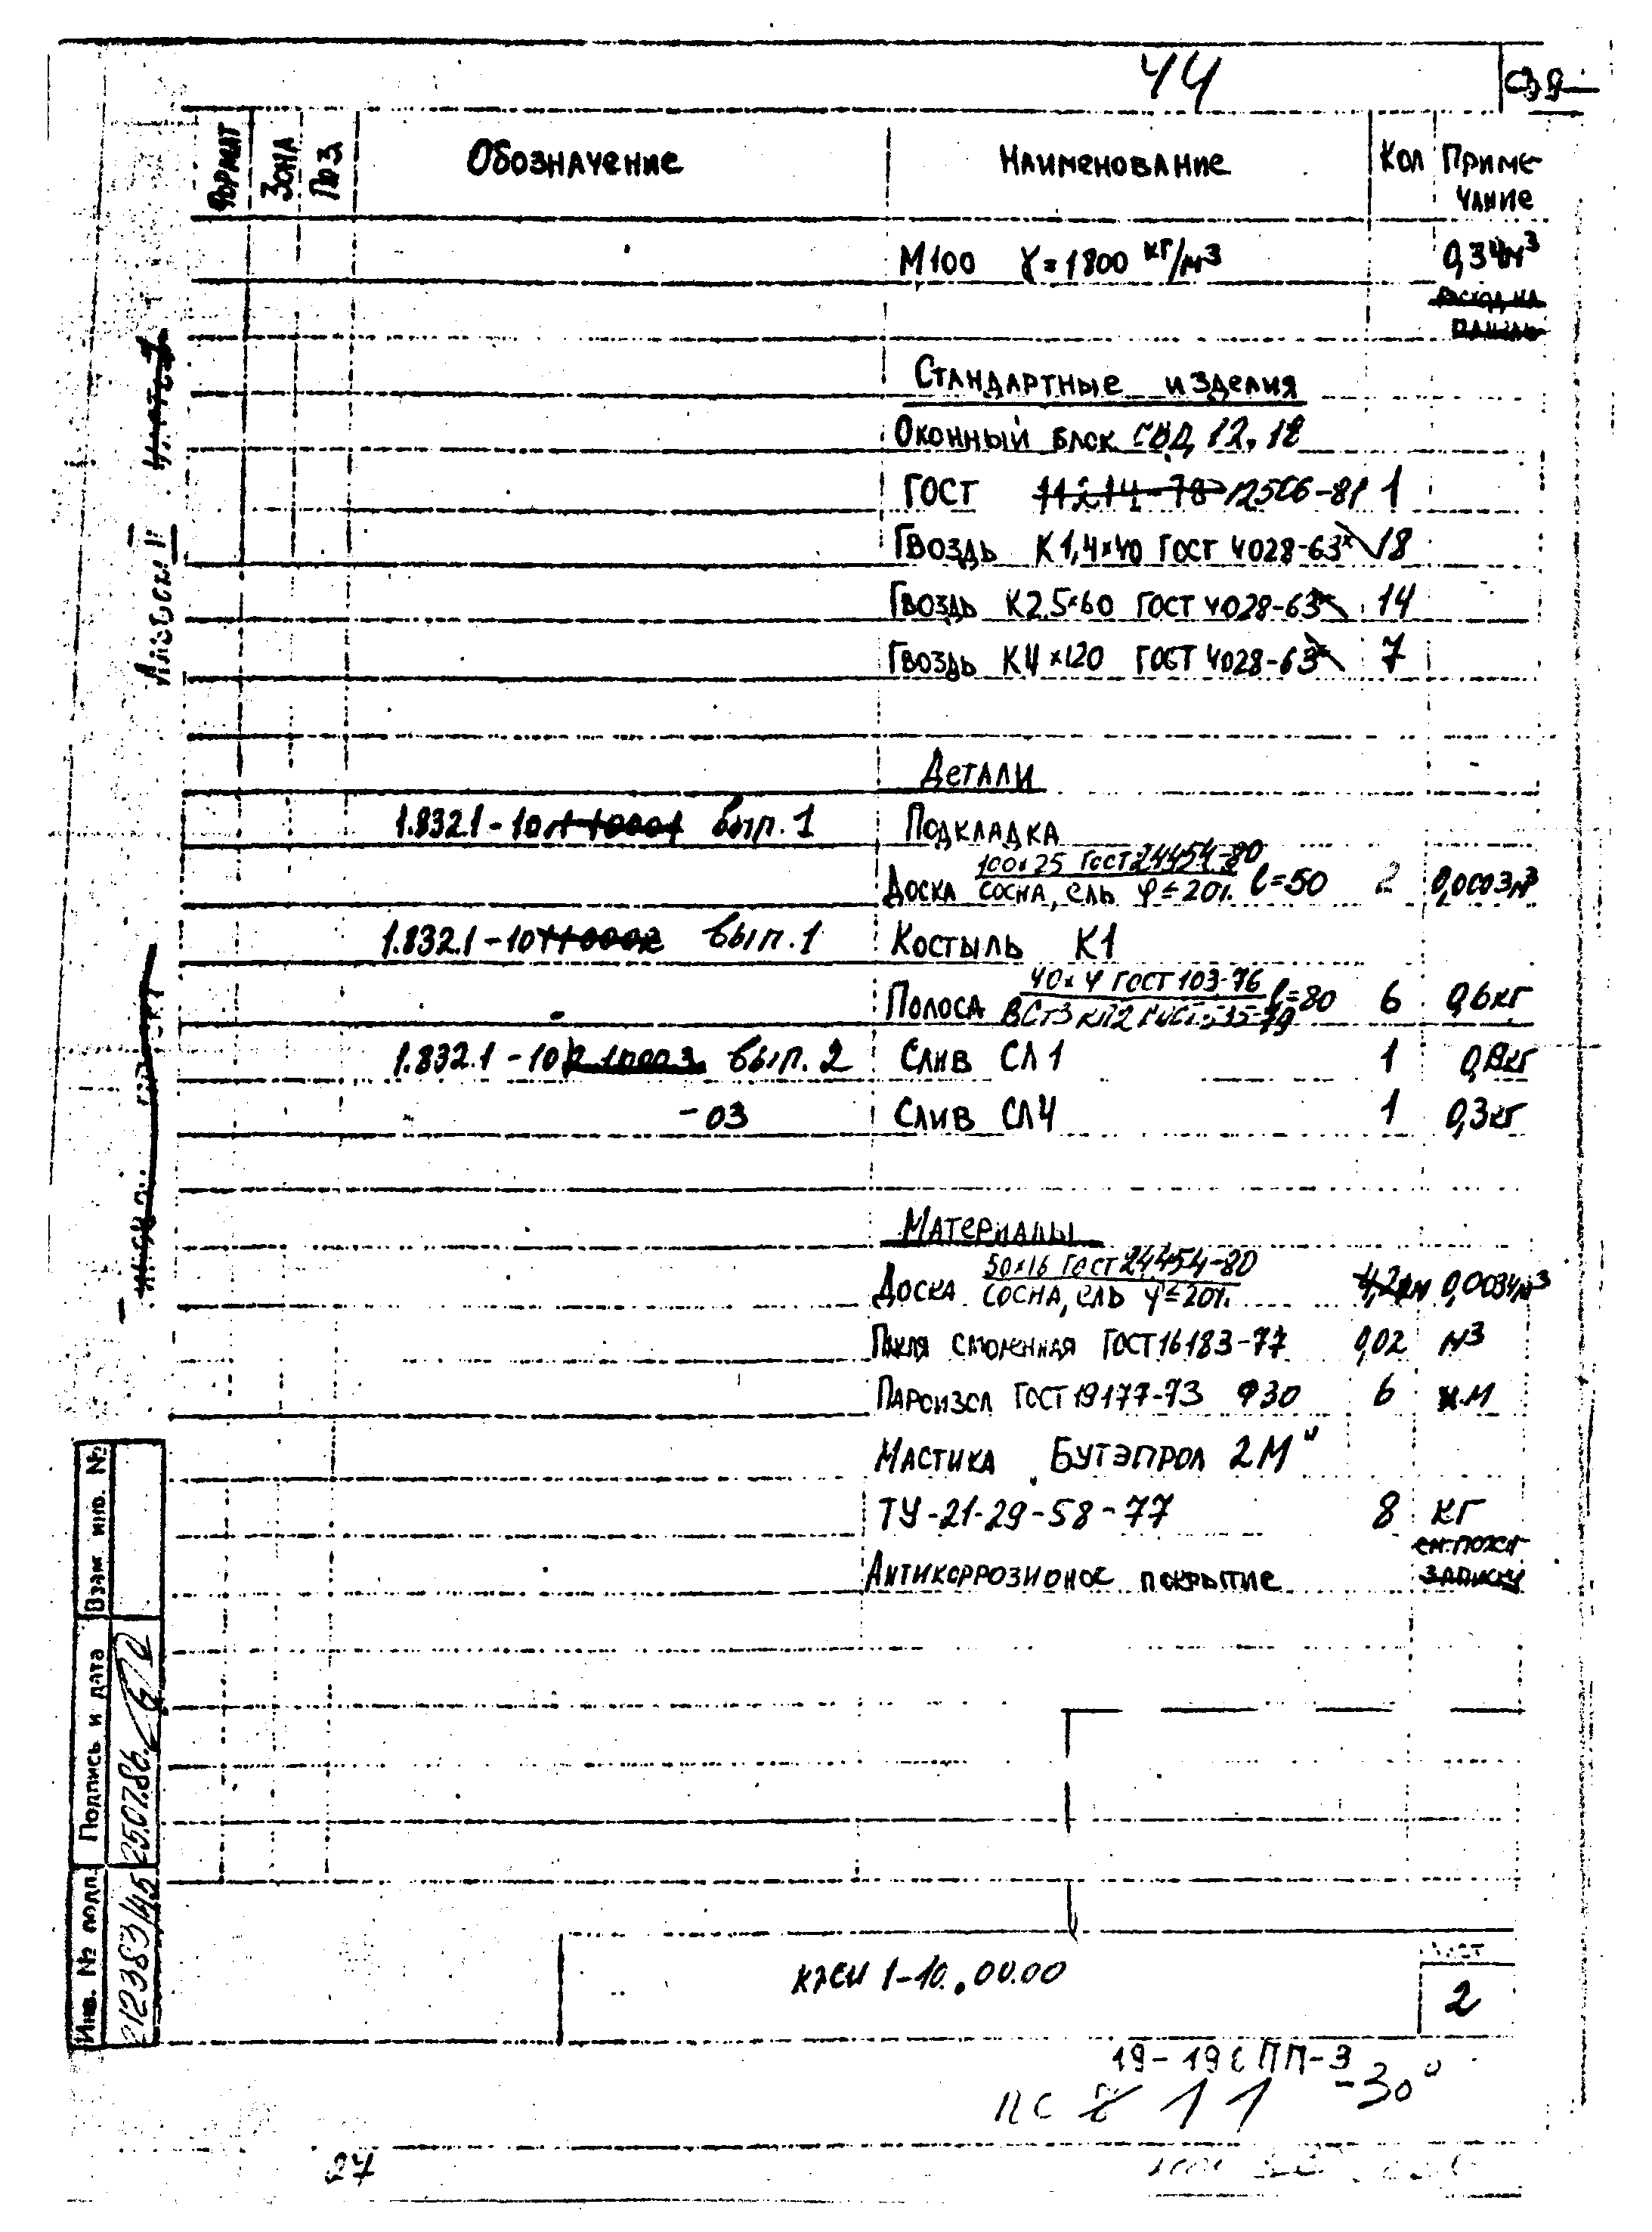 44
39
Формат Зона Поз Обозначение Наименование Кол Приме-
чание
М100 γ=1800 кг/м3 0,34м3
расход на
панель
Стандартные изделия
Оконный блок 12.18
ГОСТ 11214-78 12506-81 1
Гвоздь К1,4×40 ГОСТ 4028-63 18
Гвоздь К2.5×60 ГОСТ 4028-63 14
Гвоздь К4×120 ГОСТ 4028-63 7
Детали
1.832.1-10 вып.1 Подкладка
100×25 ГОСТ 24454-80
Доска сосна, ель φ≤20%. l=50 2 0,0003м3
1.832.1-10 вып.1 Костыль К1
40×4 ГОСТ 103-76
Полоса ВСт3кп2 ГОСТ 535-79 l=80 6 0,6кг
1.832.1-10 вып.2 Слив СЛ1 1
-03 Слив СЛ4 1 0,3кг
Материалы
50×16 ГОСТ 24454-80
Доска сосна, ель φ≤20%. 4,2 0,0034м3
Пакля смоленная ГОСТ 16183-77 0,02 м3
Пароизол ГОСТ 19177-73 Φ30 6 п.м
Мастика Бутэпрол 2М"
ТУ-21-29-58-77 8 кг
см. пояс
записку
Антикоррозионое покрытие
Альбом II
Взам. инв. №
Подпись и дата 25.07.86.
Инв. № подл. 212383/45
1-10. .00.00
Лист
2
19-19 ПП-3
ПС 11 -30°
27